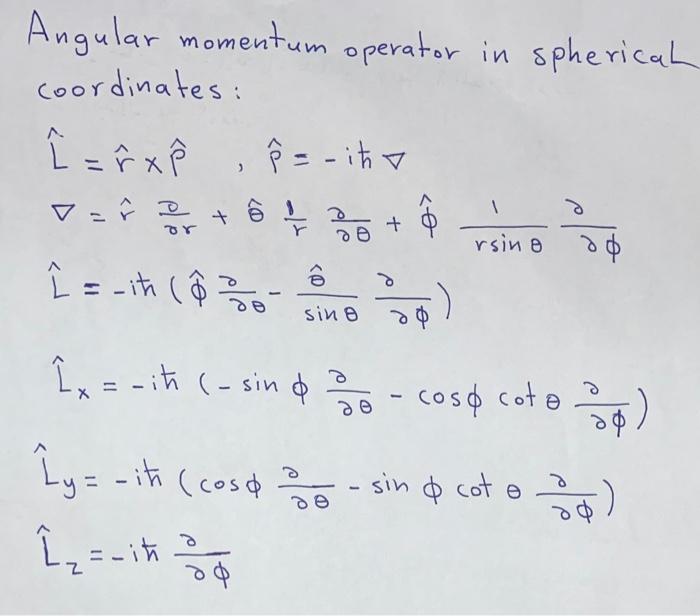 Angular momentum operator in spherical
coordinates:
L̂ = r̂ × p̂ , p̂ = -iħ ∇
∇ = r̂ ∂/∂r + θ̂ 1/r ∂/∂θ + ϕ̂ 1/(r sin θ) ∂/∂ϕ
L̂ = -iħ (ϕ̂ ∂/∂θ - θ̂/sin θ ∂/∂ϕ)
L̂x = -iħ (- sin ϕ ∂/∂θ - cosϕ cot θ ∂/∂ϕ)
L̂y = -iħ (cosϕ ∂/∂θ - sin ϕ cot θ ∂/∂ϕ)
L̂z = -iħ ∂/∂ϕ